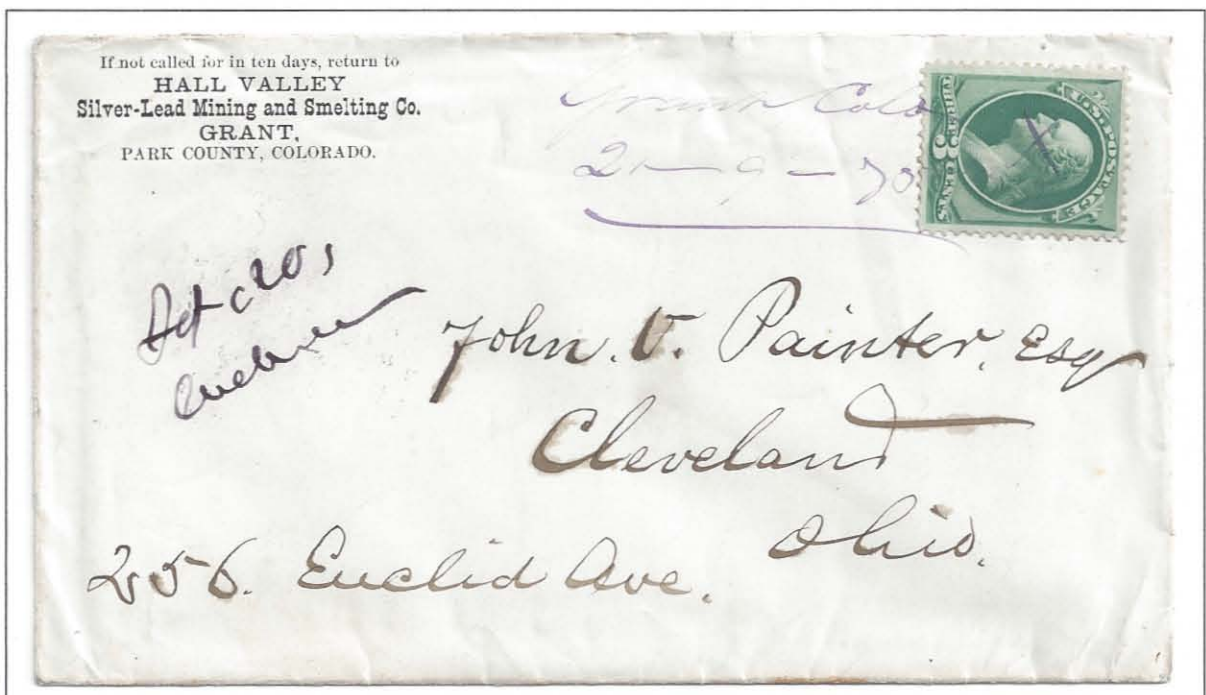 If not called for in ten days, return to
HALL VALLEY
Silver-Lead Mining and Smelting Co.
GRANT,
PARK COUNTY, COLORADO.
Grant Colo
U.S. POSTAGE
John. V. Painter, Esq
Cleveland
Ohio.
256. Euclid Ave.